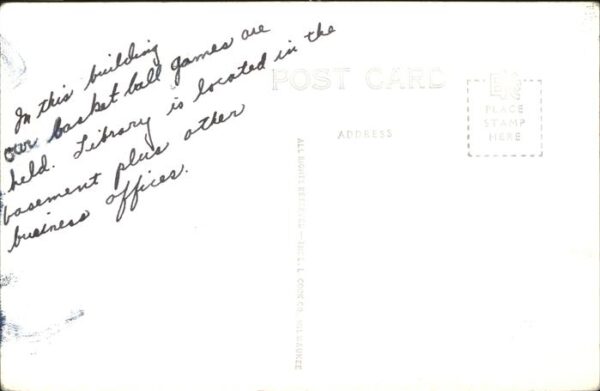 In this building
our basket ball games are
held. Library is located in the
basement plus other
business offices.
POST CARD
ADDRESS
PLACE
STAMP
HERE
ALL RIGHTS RESERVED — THE L. L. COOK CO. MILWAUKEE